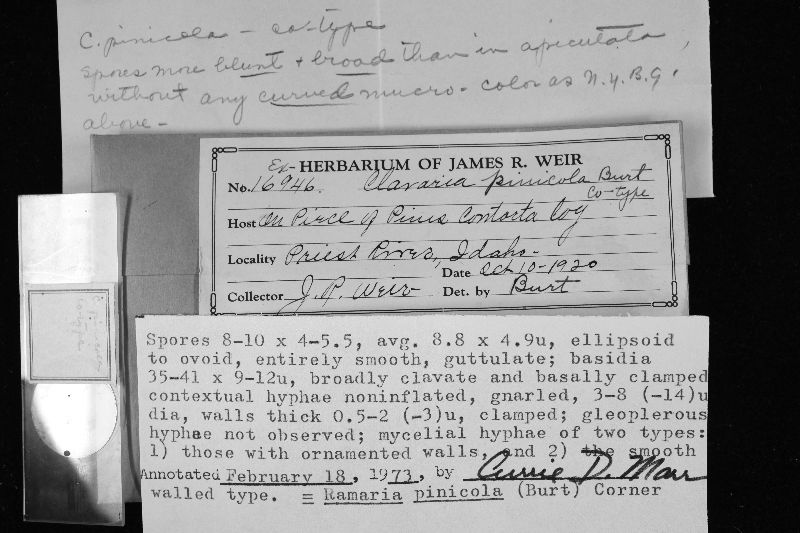 C. pinicola - co-type
Spores more blunt + broad than in apiculata,
without any curved mucro. - color as N.Y.B.G.
above -
Ex- HERBARIUM OF JAMES R. WEIR
No. 16946. Clavaria pinicola Burt
Co-type
Host On Piece of Pinus Contorta log
Locality Priest River, Idaho -
Date Oct 10-1920
Collector J. R. Weir Det. by Burt
Spores 8-10 x 4-5.5, avg. 8.8 x 4.9u, ellipsoid
to ovoid, entirely smooth, guttulate; basidia
35-41 x 9-12u, broadly clavate and basally clamped
contextual hyphae noninflated, gnarled, 3-8 (-14)u
dia, walls thick 0.5-2 (-3)u, clamped; gleoplerous
hyphae not observed; mycelial hyphae of two types:
1) those with ornamented walls, and 2) the smooth
Annotated February 18, 1973, by Currie D. Marr
walled type. ≡ Ramaria pinicola (Burt) Corner